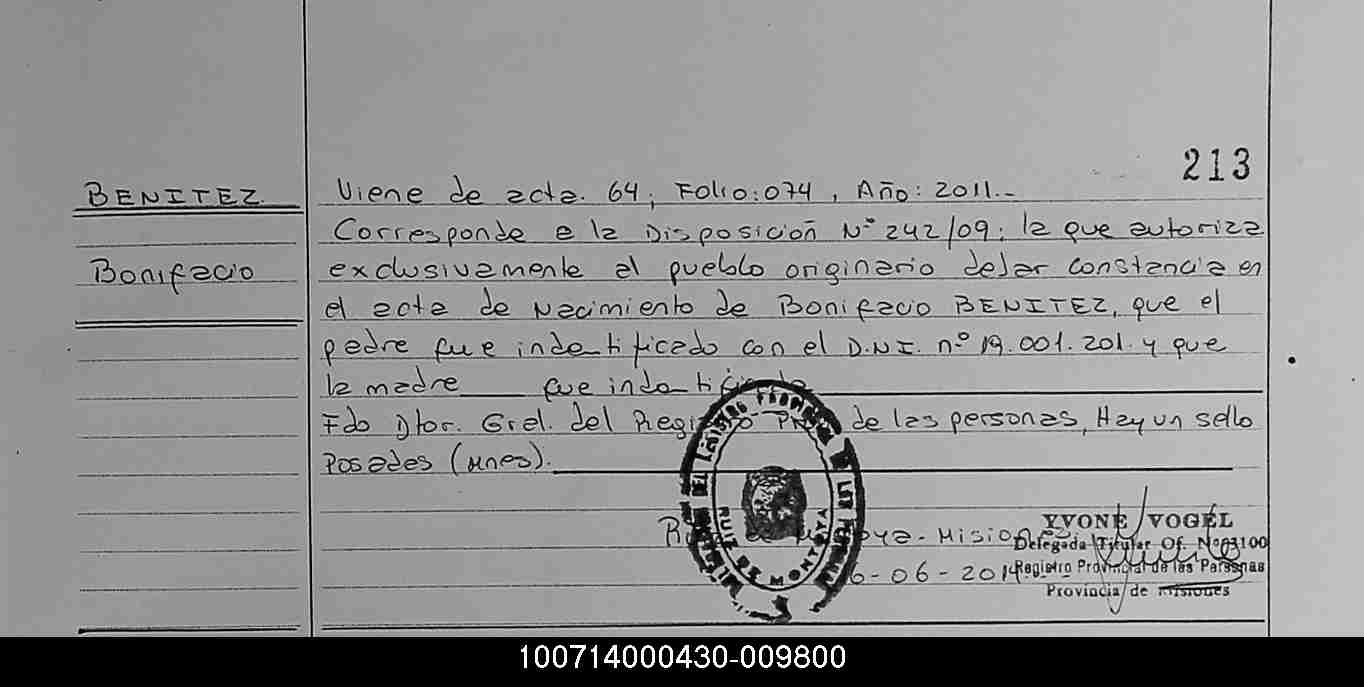 213
BENITEZ.
Bonifacio
Viene de acta. 64; Folio: 074, Año: 2011.-
Corresponde a la Disposición Nº 242/09; la que autoriza
exclusivamente al pueblo originario dejar constancia en
el acta de Nacimiento de Bonifacio BENITEZ, que el
padre fue indentificado con el D.N.I. nº 19.001.201. y que
la madre fue indentificada
Fdo Dtor. Gral. del Registro Prov. de las personas, Hay un sello
Posadas (Mnes).
Misiones
6-06-2014
RUIZ DE MONTOYA
YVONE VOGEL
Delegada Titular Of. Nº 03100
Registro Provincial de las Personas
Provincia de Misiones
100714000430-009800